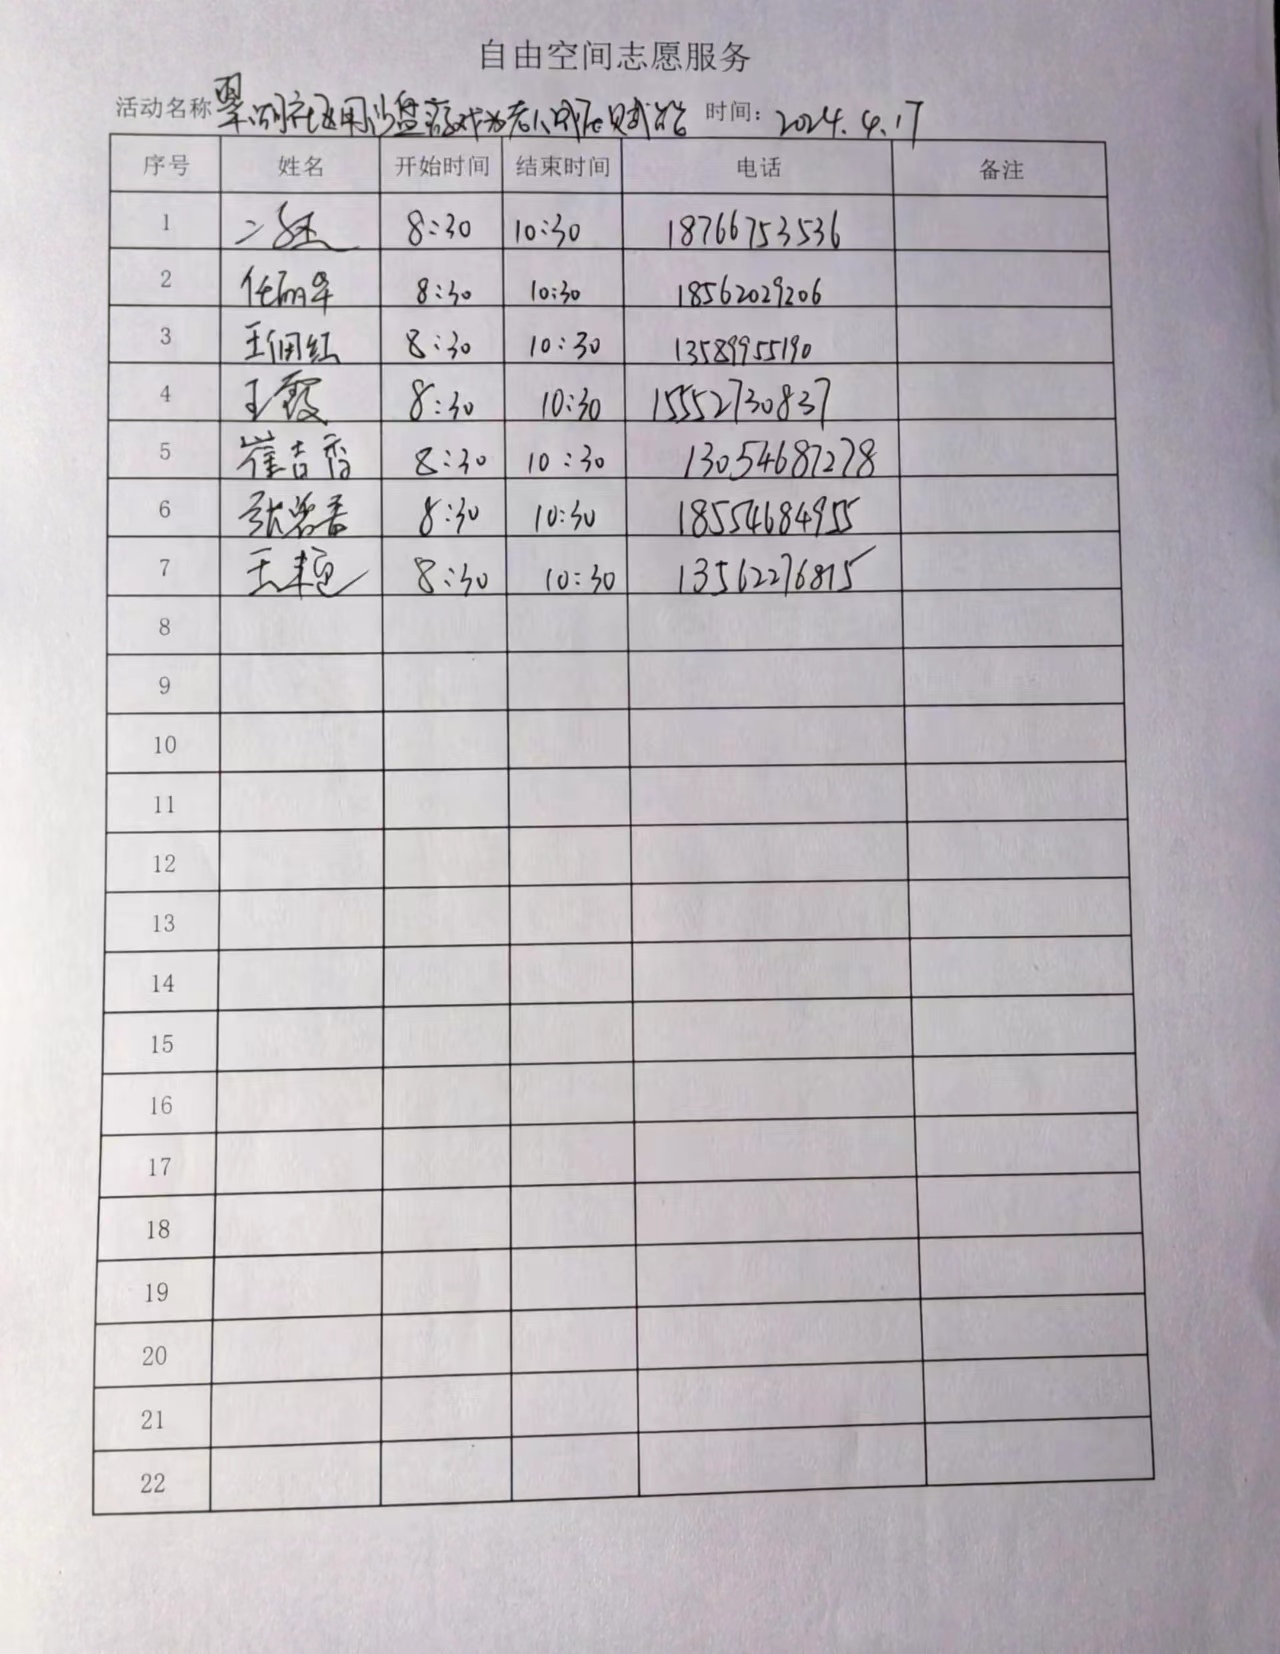 自由空间志愿服务
活动名称 翠湖社区用沙盘游戏为老人赋能 时间: 2024.4.17
序号 姓名 开始时间 结束时间 电话 备注
1 8:30 10:30 18766753536
2 任丽华 8:30 10:30 18562029206
3 王佃红 8:30 10:30 13589955190
4 王霞 8:30 10:30 15552730837
5 崔吉香 8:30 10:30 13054687278
6 8:30 10:30 18554684955
7 8:30 10:30 13562276815
8
9
10
11
12
13
14
15
16
17
18
19
20
21
22